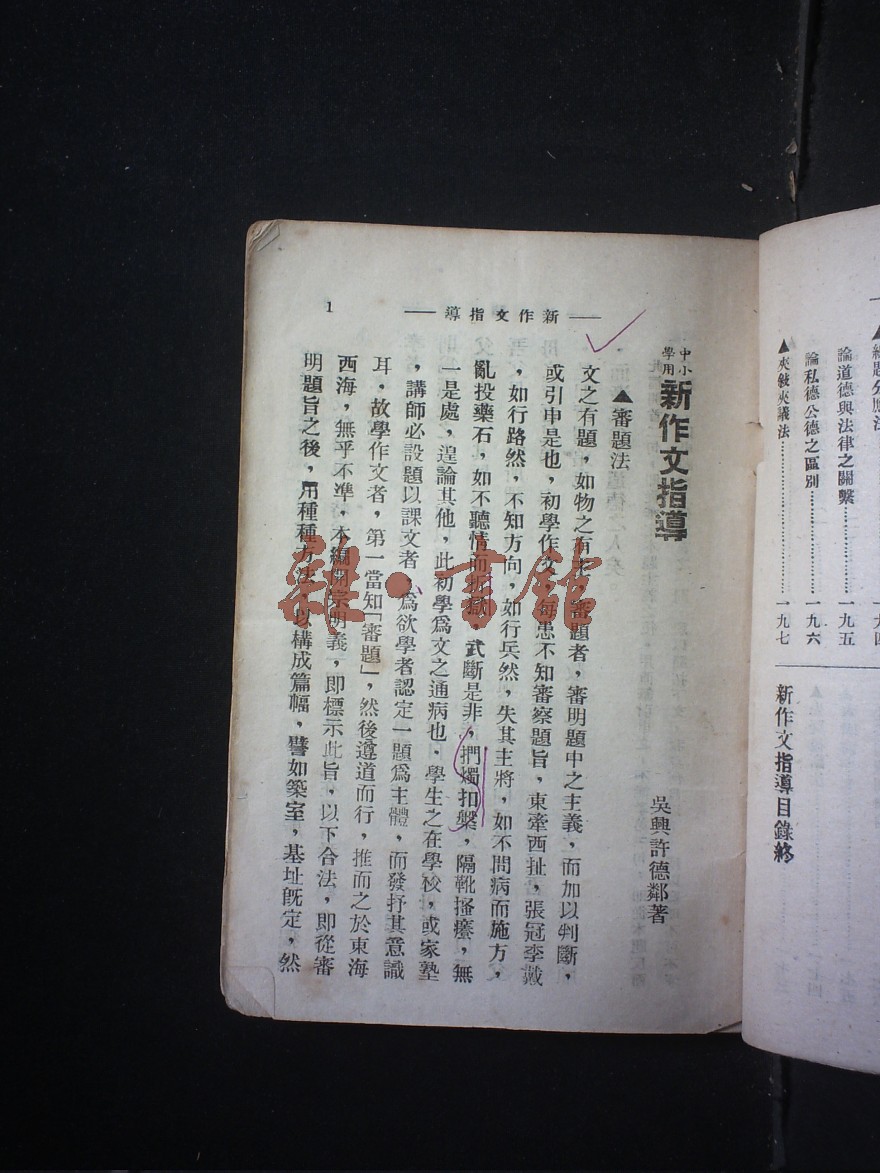 論道德與法律之關繫…………一九五
論私德公德之區別…………一九六
▲夾敍夾議法…………一九七
新作文指導目錄終
中小學用新作文指導
吳興許德鄰著
▲審題法
——新作文指導——
1
文之有題，如物之有，審題者，審明題中之主義，而加以判斷，
或引申是也，初學作文，每患不知審察題旨，東牽西扯，張冠李戴
，如行路然，不知方向，如行兵然，失其主將，如不問病而施方，
亂投藥石，如不聽情而折獄，武斷是非，捫燭扣槃，隔靴搔癢，無
一是處，遑論其他，此初學爲文之通病也．學生之在學校，或家塾
，講師必設題以課文者，爲欲學者認定一題爲主體，而發抒其意識
耳．故學作文者，第一當知「審題」，然後遵道而行，推而之於東海
西海，無乎不準，本編開宗明義，即標示此旨，以下合法，即從審
明題旨之後，用種種方法，以構成篇幅，譬如築室，基址旣定，然
雜·書館